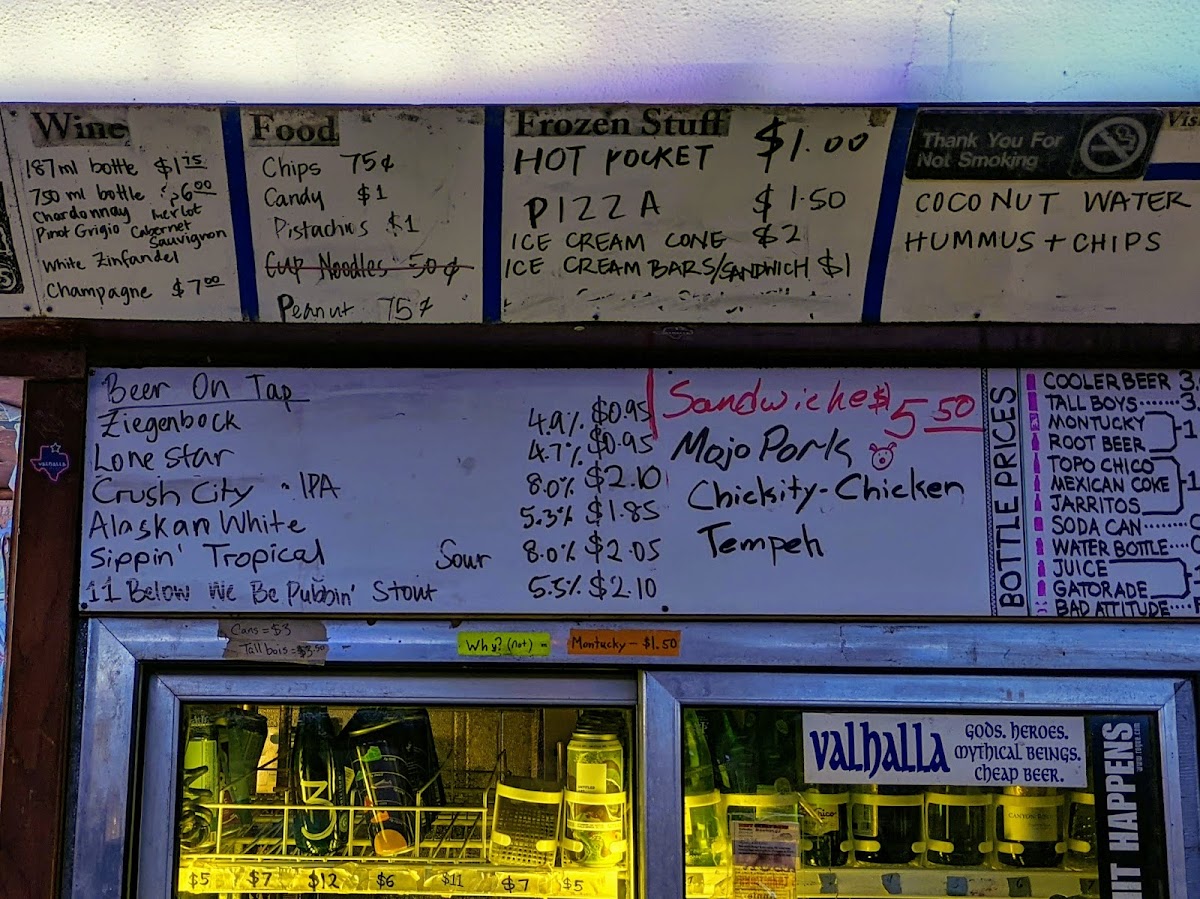 Wine
187ml bottle $1.75
750 ml bottle $6.00
Chardonnay Merlot
Pinot Grigio Cabernet
Sauvignon
White Zinfandel
Champagne $7.00
Food
Chips 75¢
Candy $1
Pistachios $1
Cup Noodles 50¢
Peanut 75¢
Frozen Stuff
HOT POCKET $1.00
PIZZA $1.50
ICE CREAM CONE $2
ICE CREAM BARS/SANDWICH $1
Thank You For
Not Smoking
COCONUT WATER
HUMMUS + CHIPS
Beer On Tap
Ziegenbock 4.9% $0.95
Lone Star 4.7% $0.95
Crush City - IPA 8.0% $2.10
Alaskan White 5.3% $1.85
Sippin' Tropical Sour 8.0% $2.05
11 Below We Be Pubbin' Stout 5.5% $2.10
Sandwiches $5.50
Mojo Pork
Chickity-Chicken
Tempeh
BOTTLE PRICES
COOLER BEER 3.
TALL BOYS 3.
MONTUCKY
ROOT BEER
TOPO CHICO
MEXICAN COKE
JARRITOS
SODA CAN
WATER BOTTLE
JUICE
GATORADE
BAD ATTITUDE
VALHALLA
Cans = $3
Tall bois = $3.50
Why? (not) =
Montucky - $1.50
valhalla
GODS. HEROES.
MYTHICAL BEINGS.
CHEAP BEER.
IT HAPPENS
$5 $7 $12 $6 $11 $7 $5